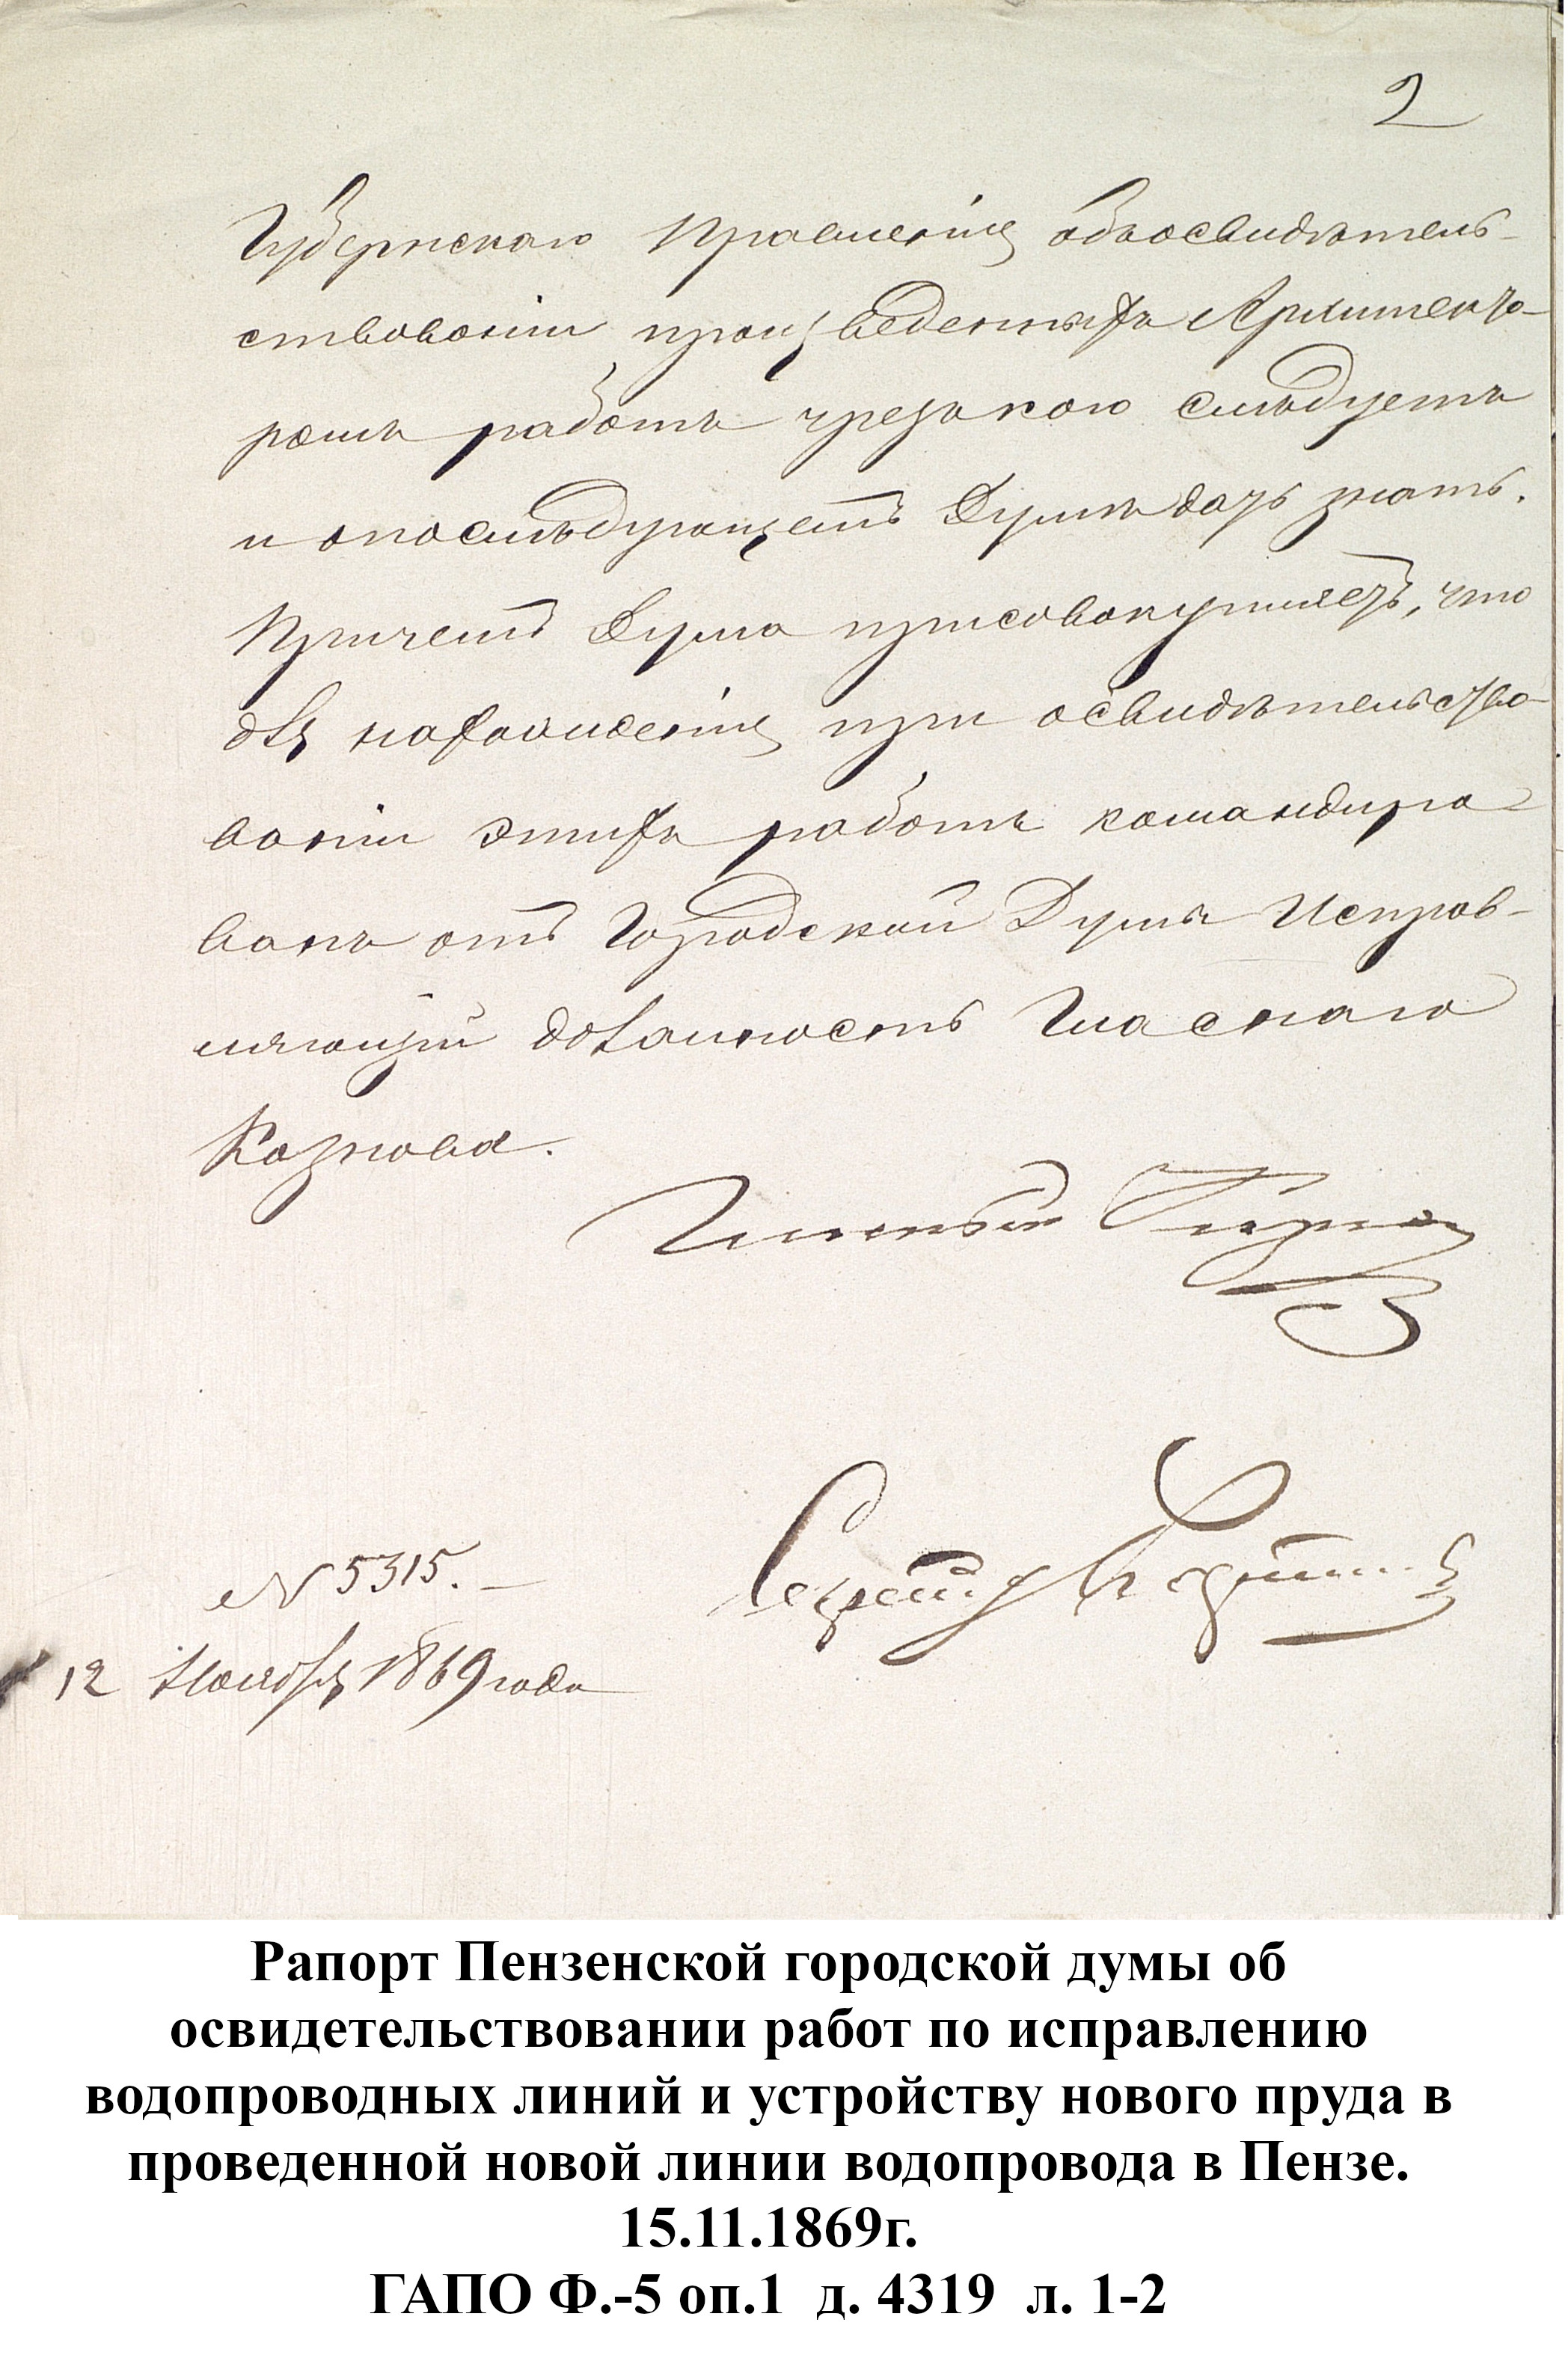 2
Губернскаго Правленія объ освидѣтель-
ствованіи произведенныхъ Архитекто-
ромъ работъ чрезъ кого слѣдуетъ
и о послѣдующемъ Думѣ дать знать.
При чемъ Дума присовокупляетъ, что
для нахожденія при освидѣтельство-
ваніи этихъ работъ командиро-
ванъ отъ Городской Думы Исправ-
ляющій должность Гласнаго
Казнова.
Секретарь
№ 5315.
12 Ноября 1869 года
Рапорт Пензенской городской думы об
освидетельствовании работ по исправлению
водопроводных линий и устройству нового пруда в
проведенной новой линии водопровода в Пензе.
15.11.1869г.
ГАПО Ф.-5 оп.1 д. 4319 л. 1-2